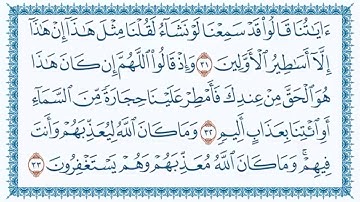 ءَايَٰتُنَا قَالُوا۟ قَدْ سَمِعْنَا لَوْ نَشَآءُ لَقُلْنَا مِثْلَ هَٰذَآ إِنْ هَٰذَآ
إِلَّآ أَسَٰطِيرُ ٱلْأَوَّلِينَ ٣١ وَإِذْ قَالُوا۟ ٱللَّهُمَّ إِن كَانَ هَٰذَا
هُوَ ٱلْحَقَّ مِنْ عِندِكَ فَأَمْطِرْ عَلَيْنَا حِجَارَةً مِّنَ ٱلسَّمَآءِ
أَوِ ٱئْتِنَا بِعَذَابٍ أَلِيمٍ ٣٢ وَمَا كَانَ ٱللَّهُ لِيُعَذِّبَهُمْ وَأَنتَ
فِيهِمْ ۚ وَمَا كَانَ ٱللَّهُ مُعَذِّبَهُمْ وَهُمْ يَسْتَغْفِرُونَ ٣٣